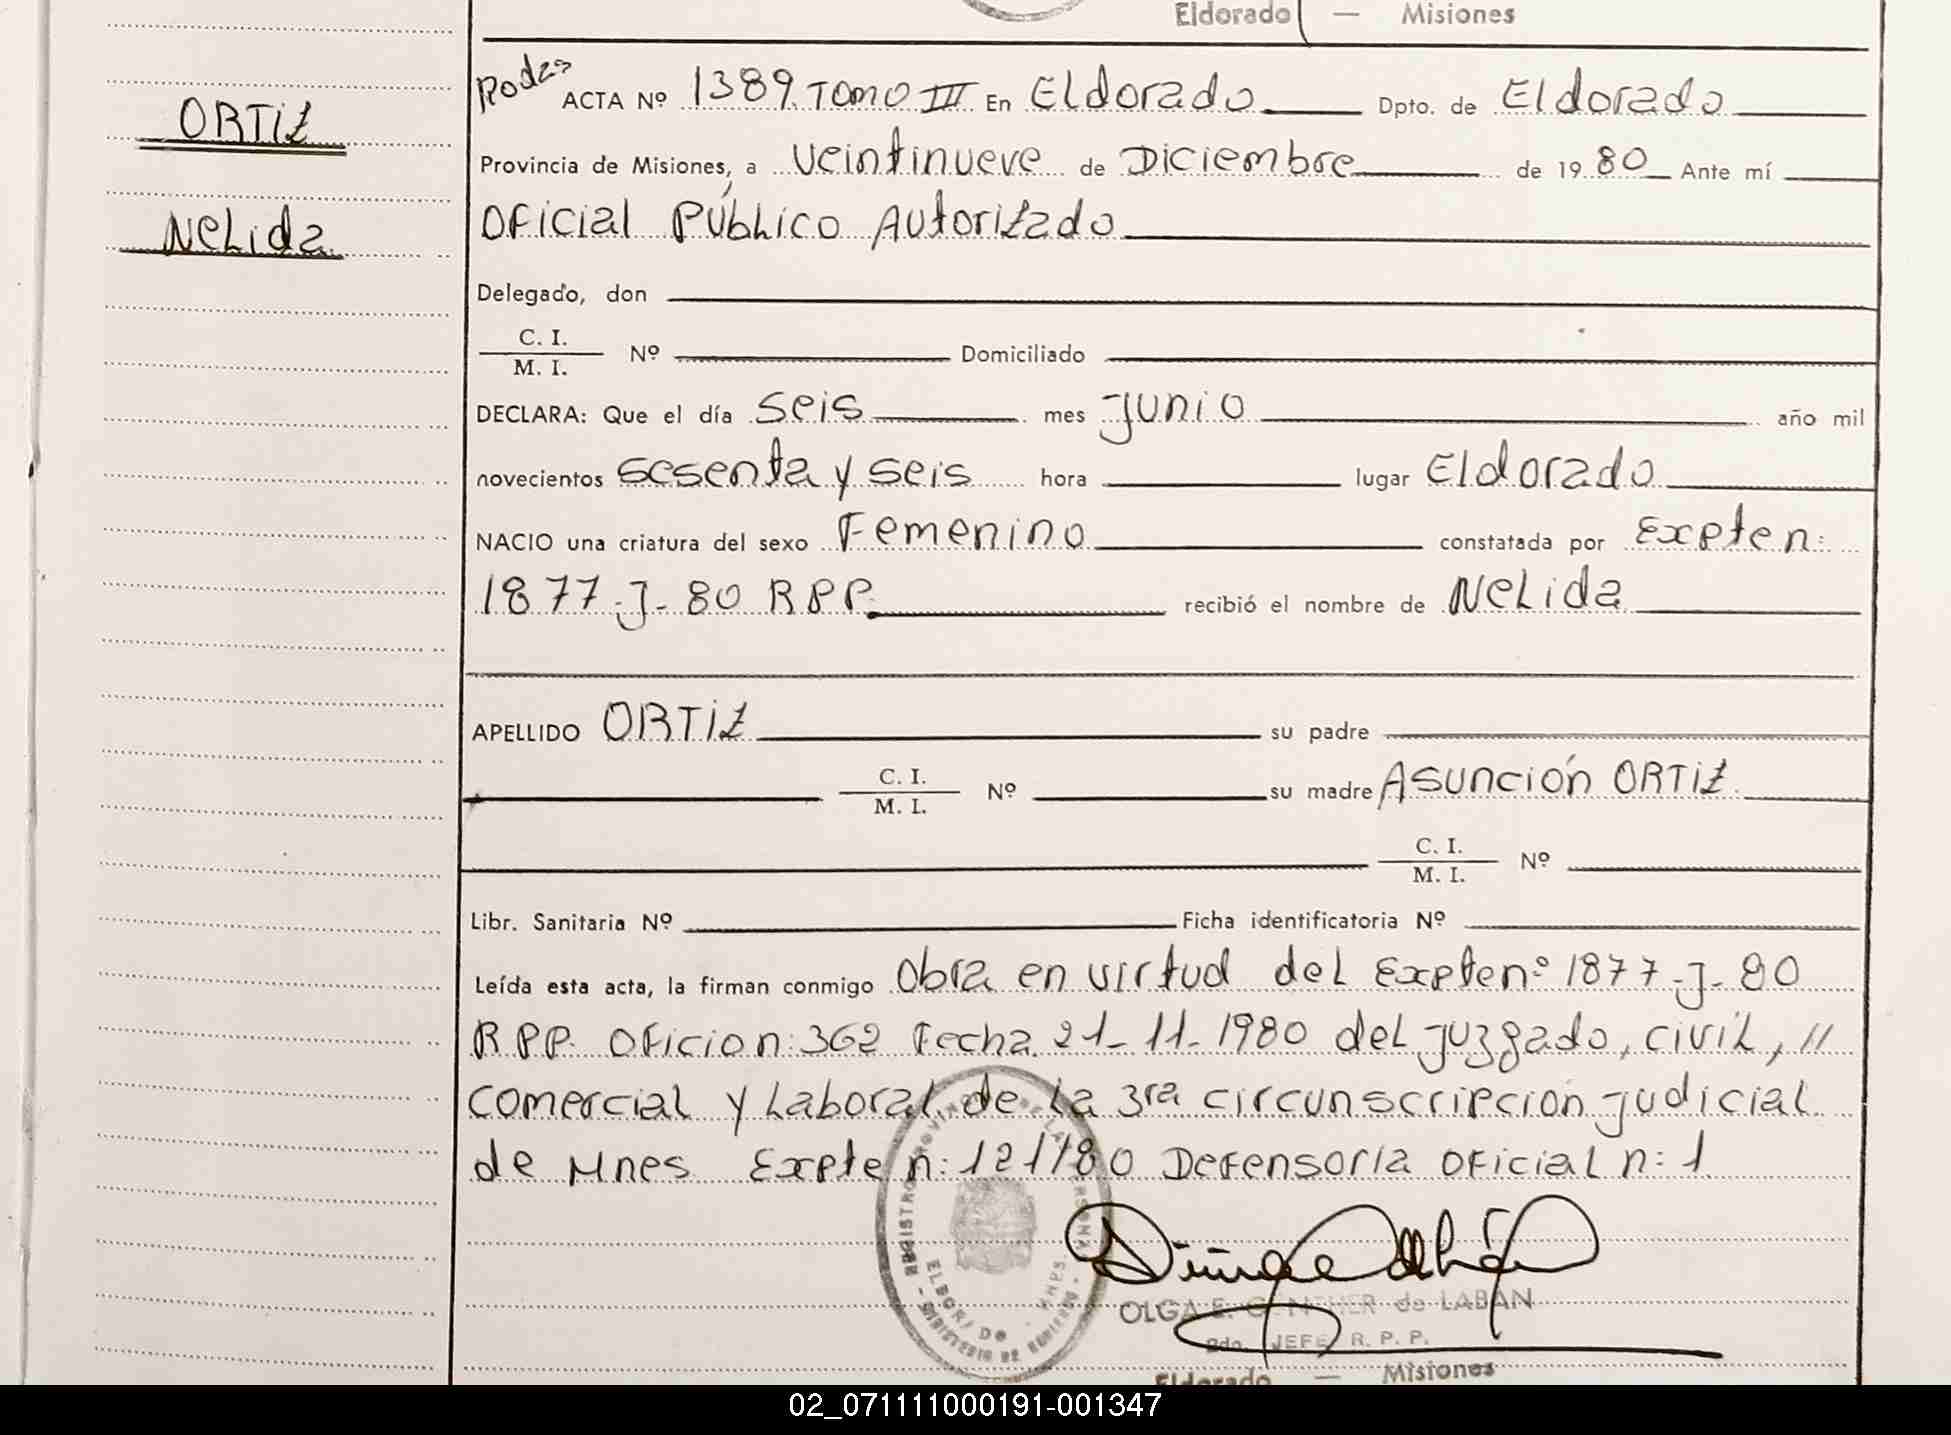 Eldorado — Misiones
ORTIZ
NELida
ACTA Nº 1389 TOMO III En Eldorado Dpto. de Eldorado
Provincia de Misiones, a veintinueve de Diciembre de 1980 Ante mí
Oficial Público Autorizado
Delegado, don
C. I.
M. I. Nº Domiciliado
DECLARA: Que el día seis mes junio año mil
novecientos sesenta y seis hora lugar Eldorado
NACIO una criatura del sexo Femenino constatada por Expte n:
1877-J-80 RPP. recibió el nombre de NELida
APELLIDO ORTIZ su padre
C. I.
M. I. Nº su madre Asunción ORTIZ
C. I.
M. I. Nº
Libr. Sanitaria Nº Ficha identificatoria Nº
Leída esta acta, la firman conmigo Obra en virtud del Expte nº 1877-J-80
RPP. Oficio n: 362 Fecha 21-11-1980 del juzgado, civil, //
comercial y Laboral de la 3ra circunscripción judicial
de Mnes Expte n: 121/80 Defensoría Oficial n: 1
OLGA E. GENTNER de LABAN
JEFE R. P. P.
Eldorado — Misiones
02_071111000191-001347